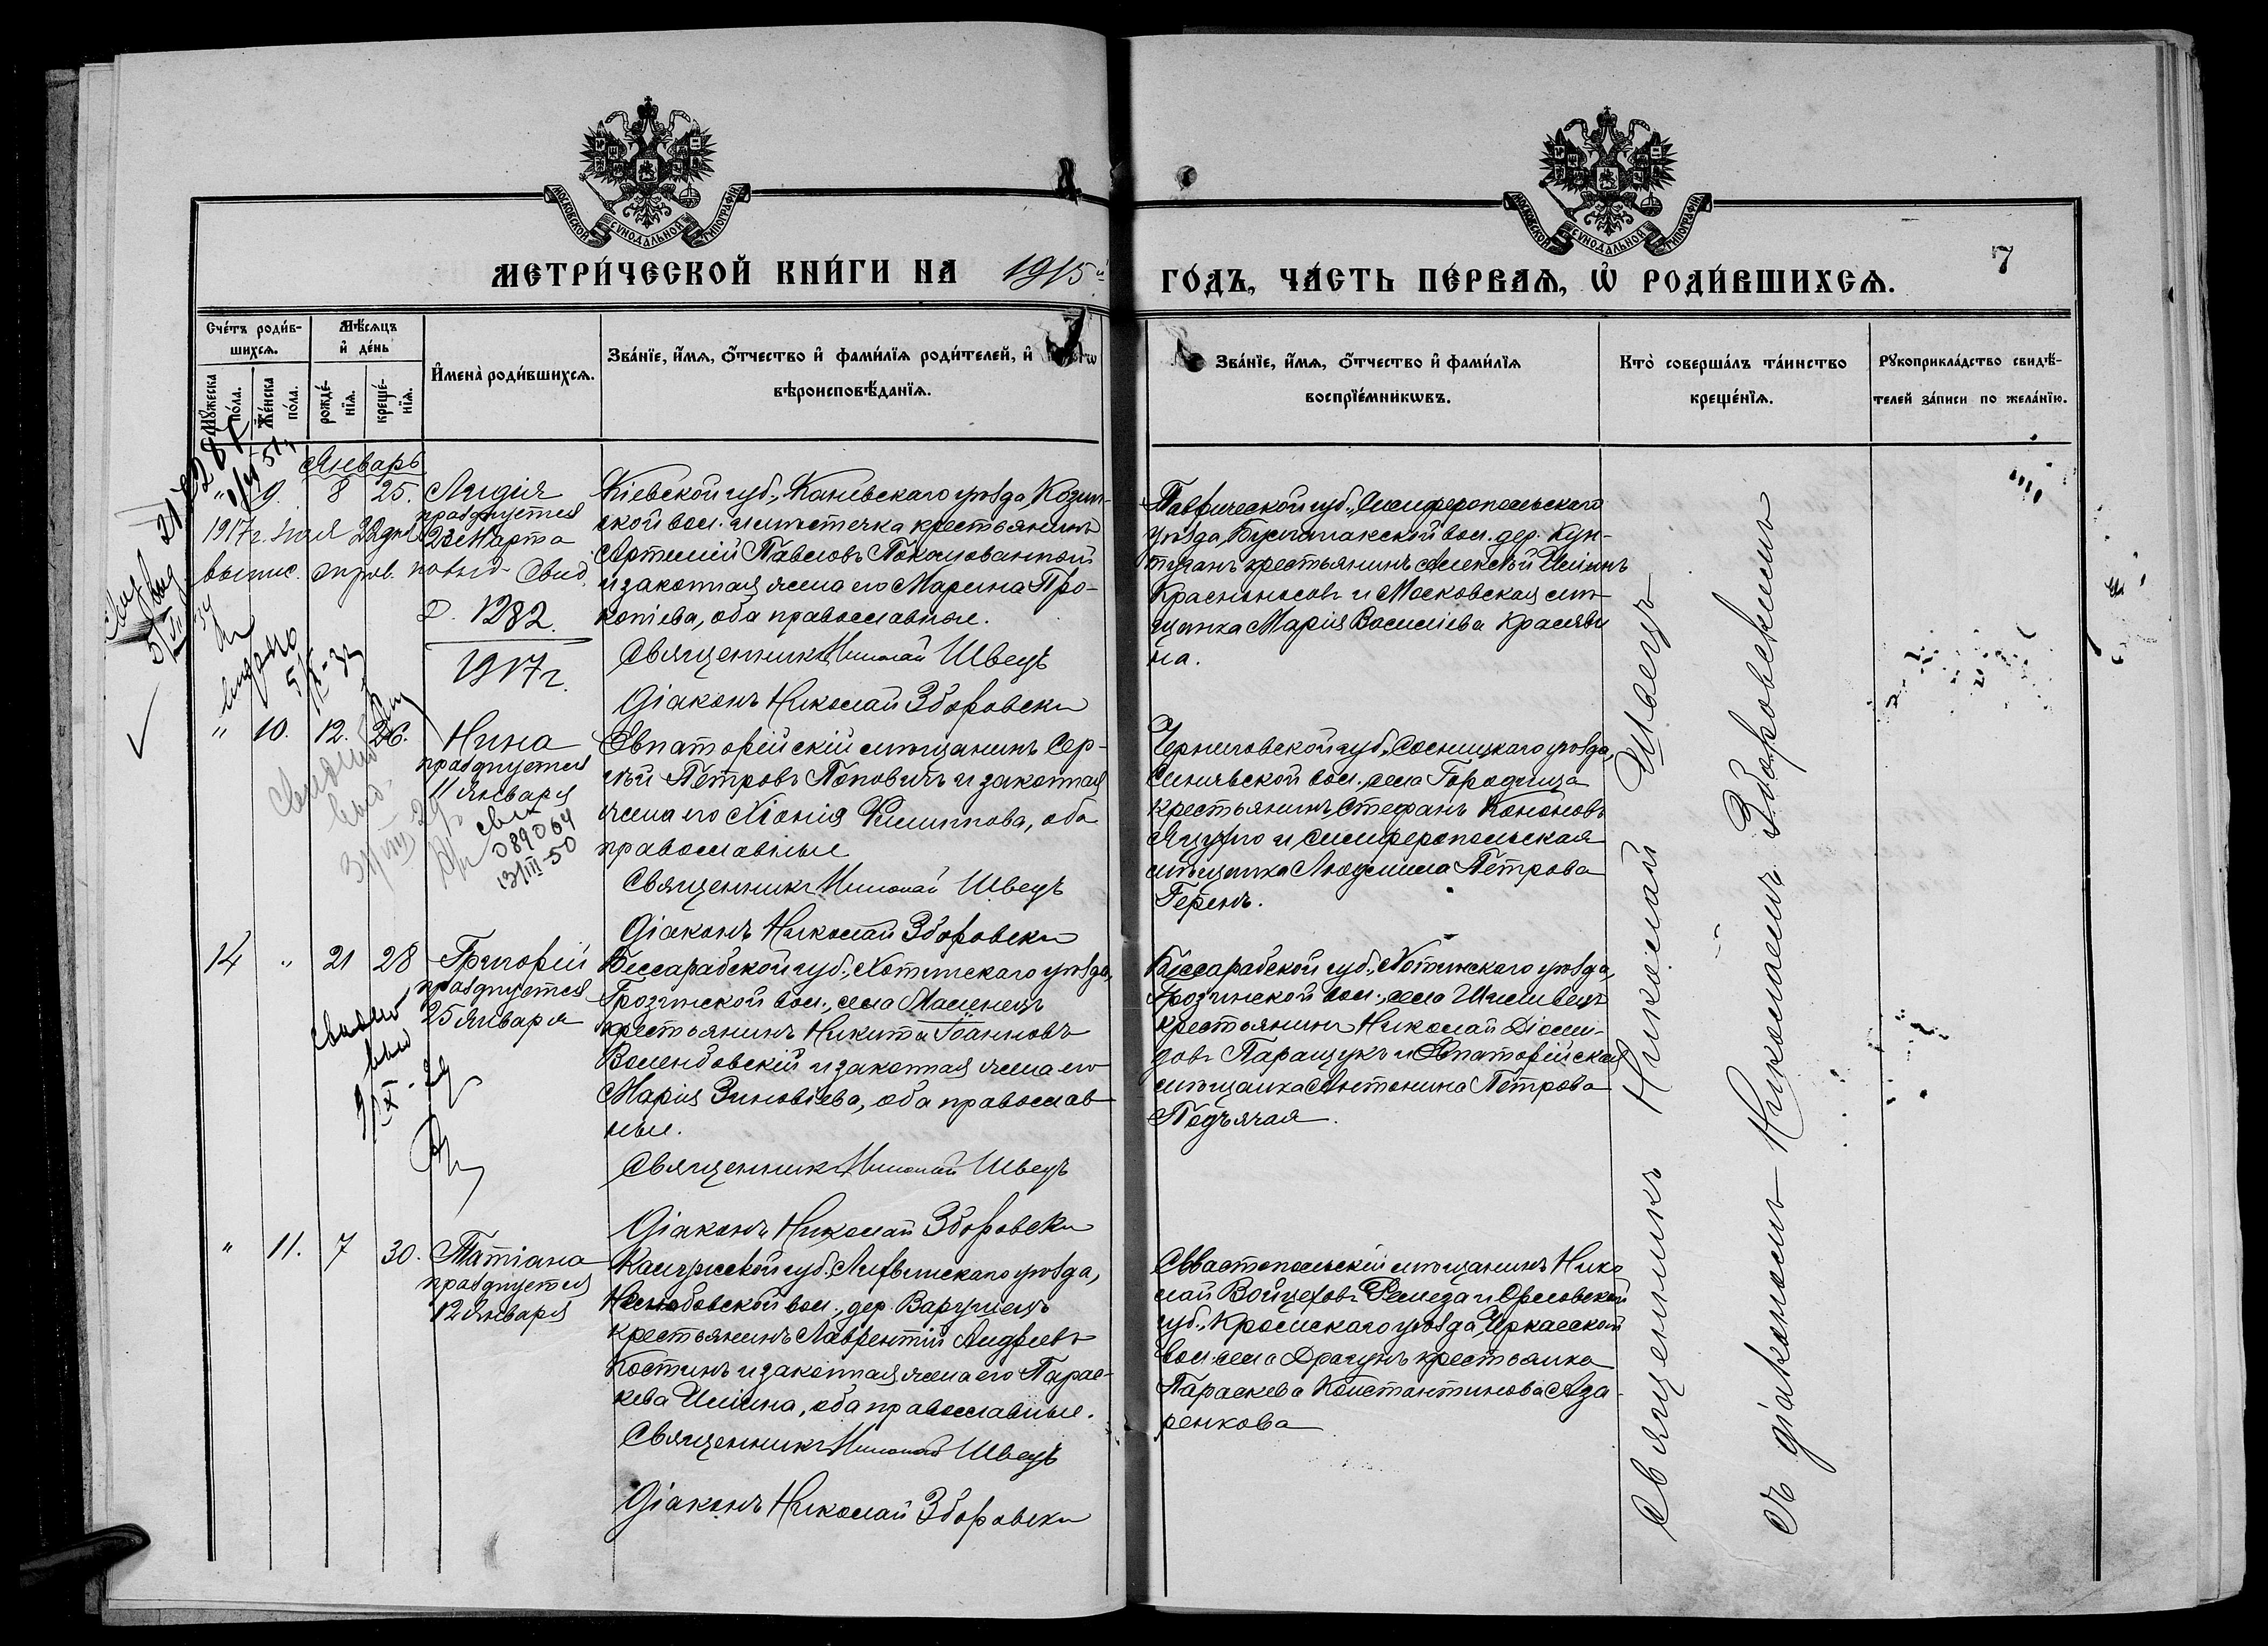 МОСКОВСКОЙ СѴНОДАЛЬНОЙ ТИПОГРАФІИ
МОСКОВСКОЙ СѴНОДАЛЬНОЙ ТИПОГРАФІИ
МЕТРИ́ЧЕСКОЙ КНИ́ГИ НА 1915й
ГО́ДЪ, ЧА́СТЬ ПЕ́РВАѦ, Ѽ РОДИ́ВШИХСѦ.
7
Сче́тъ роди́в-
шихсѧ.
Мѣ́сѧцъ
и҆ де́нь
Мꙋ́жеска
по́ла.
Же́нска
по́ла.
рожде́-
нїѧ.
креще́-
нїѧ.
И҆мена̀ роди́вшихсѧ.
Зва́нїе, и҆́мѧ, ѻ҆́тчество и҆ фами́лїѧ роди́телей, и҆
вѣроисповѣ́данїѧ.
Зва́нїе, и҆́мѧ, ѻ҆́тчество и҆ фами́лїѧ
воспрїе́мникѡвъ.
Кто̀ соверша́лъ та́инство
креще́нїѧ.
Рꙋкоприкла́дство свидѣ́-
телей за́писи по жела́нїю.
Январь
" 9. 8 25. Лидія
празднуется
23 Марта
1917г. Мая 22 дня
выпис. метрич. выд. Свид.
1282.
1917г.
Кіевской губ., Каневскаго уѣзда, Козин-
ской вол. и мѣстечка крестьянинъ
Артемій Павловъ Поколованный
и законная жена его Марина Про-
копіева, оба православные.
Священникъ Николай Швецъ
Діаконъ Николай Зборовски
Таврической губ., Симферопольскаго
уѣзда, Бусчакской вол. дер. Кун-
туганъ крестьянинъ Алексѣй Ильинъ
Красноносовъ и Московская мѣ-
щанка Марія Василіева Краляви
на.
" 10. 12. 26. Нина
празднуется
11 Января
свид
089064
13/III-50
Евпаторійскій мѣщанинъ Сер-
гѣй Петровъ Поповичъ и законная
жена его Хіонія Филиппова, оба
православные
Священникъ Николай Швецъ
Діаконъ Николай Зборовски
Черниговской губ., Сосницкаго уѣзда,
Синявской вол., села Городища
крестьянинъ Стефанъ Кононовъ
Яцути и симферопольская
мѣщанка Людмила Петрова
Геренъ.
14 " 21 28 Григорій
празднуется
25 Января
Бессарабской губ., Хотинскаго уѣзда,
Грозинской вол., села Малинецъ
крестьянинъ Никита Іоанновъ
Волендовскій и законная жена его
Марія Зиновіева, оба православ
ные.
Священникъ Николай Швецъ
Діаконъ Николай Зборовски
Бессарабской губ., Хотинскаго уѣзда,
Грозинской вол., села Шиливецъ
крестьянинъ Николай Діоми-
довъ Паращукъ и Евпаторійская
мѣщанка Антонина Петрова
Подъячая.
" 11. 7 30. Татіана
празднуется
12 Января
Калужской губ. Лихвинскаго уѣзда,
вол., дер. Варушецъ
крестьянинъ Лаврентій Андреевъ
Костинъ и законная жена его Парас-
кева Ильина, оба православные.
Священникъ Николай Швецъ
Діаконъ Николай Зборовски
Севастопольскій мѣщанинъ Нико
лай Войцеховъ Ремеза и Орловской
губ., Кромскаго уѣзда, Черкасской
вол. села Драгунъ крестьянка
Параскева Константинова Аза-
ренкова
Священникъ Николай Швецъ
съ діакономъ Николаемъ Зборовскимъ